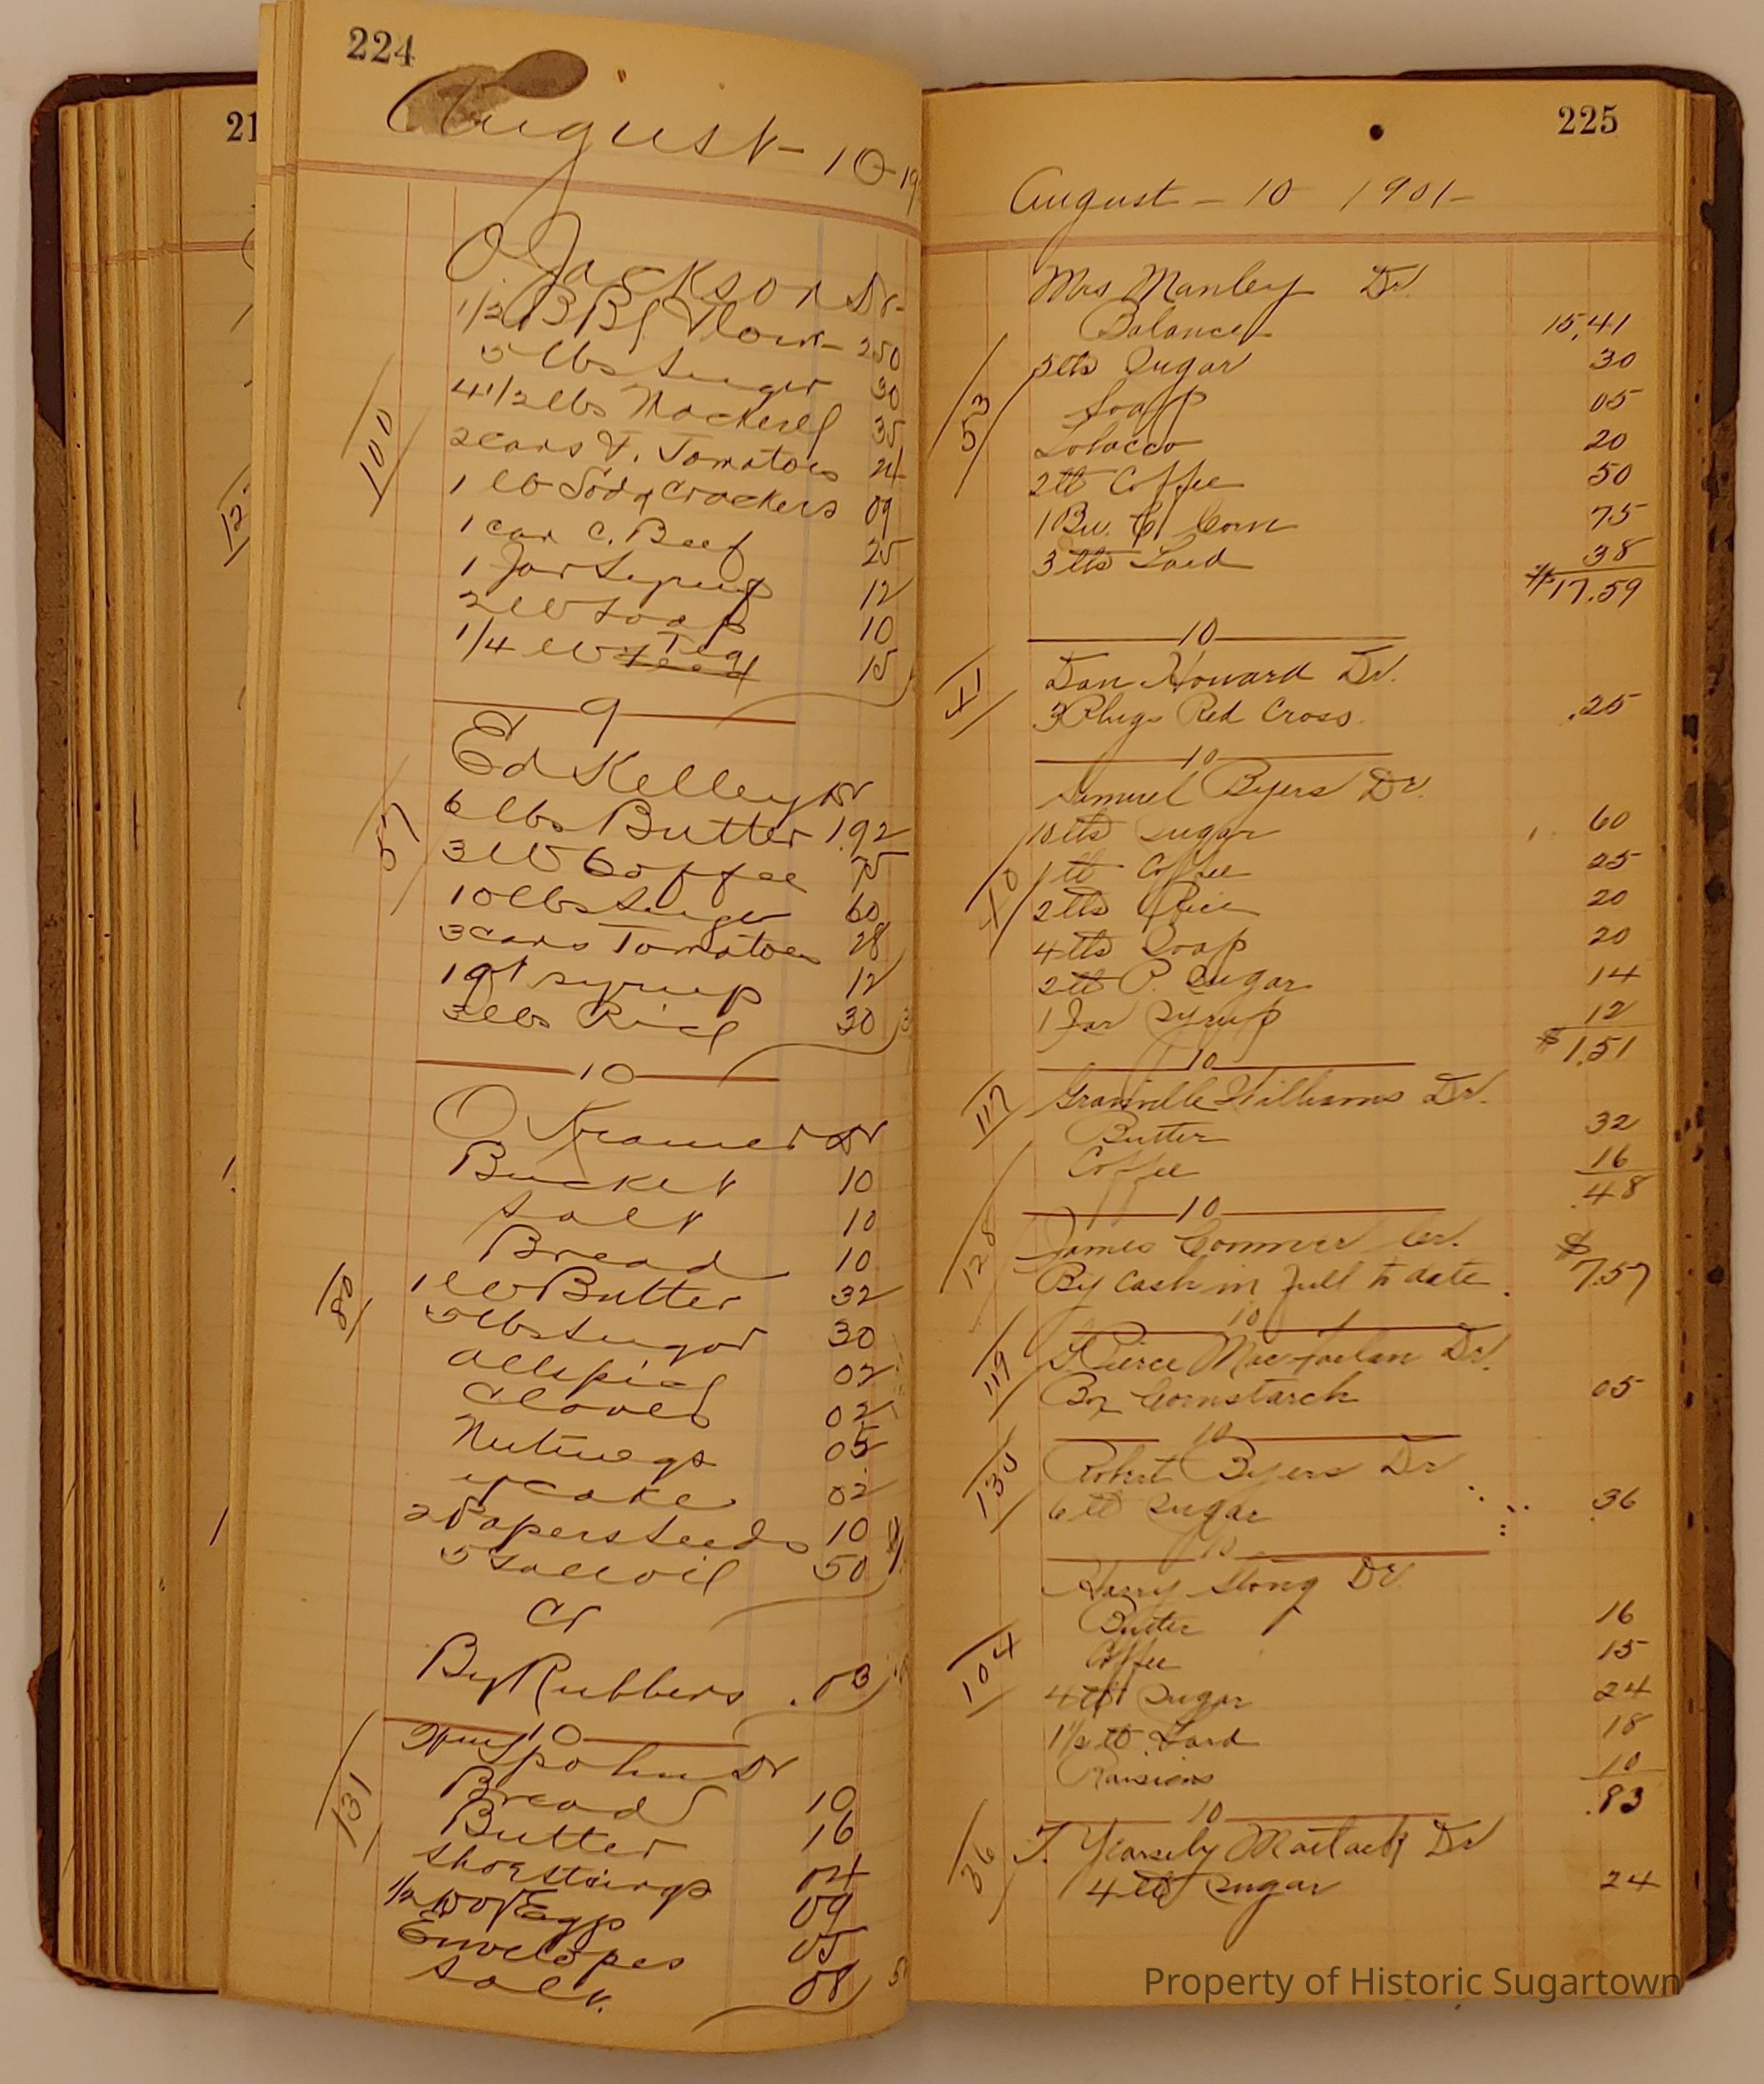 224
August - 10 - 19
O Jackson Dr -
1/2 BBl Flour - 2 50
5 lbs Suger 30
4 1/2 lbs Mackerel 35
2 cans F. Tomatoes 24
1 lb Soda Crackers 09
1 can C. Beef 25
1 Jar Syrup 12
2 lb Soap 10
1/4 lb Tea 15
100
9
Ed Kelley Dr
6 lbs Butter 1.92
3 lb Coffee 75
10 lbs Suger 60
3 cans Tomatoes 28
1 qt Syrup 12
3 lbs Rice 30
57
10
O Kramer Dr
Bucket 10
Salt 10
Bread 10
1 lb Butter 32
5 lbs Sugar 30
Allspice 02
Cloves 02
Nutmegs 05
y cake 02
2 Papers Seeds 10
5 Gall oil 50
80
Cr
By Rubbers .03
10
Spohn Dr
Bread 10
Butter 16
Shoestrings 04
1/2 doz Eggs 09
Envelopes 05
Salt. 08
131
21
12
225
August - 10 1901 -
Mrs Manley Dr
Balance 15,41
5 lb Sugar 30
Soap 05
Tobacco 20
2 lb Coffee 50
1 Bu. C. Corn 75
3 lbs Lard 38
$17.59
53
10
Dan Howard Dr.
3 Plugs Red Cross .25
41
10
Samuel Byers Dr.
10 lbs Sugar 60
1 lb Coffee 25
2 lbs Rice 20
4 lbs Soap 20
2 lb P. Sugar 14
1 Jar Syrup 12
$1.51
10
Granville Williams Dr.
Butter 32
Coffee 16
.48
117
10
James Conner Cr.
By Cash in full to date. $7.57
128
10
Pierce MacFarlan Dr.
Bx Cornstarch 05
119
10
Robert Byers Dr
6 lb Sugar 36
10
Harry Stong Dr.
Butter 16
Coffee 15
4 lb Sugar 24
1 1/2 lb Lard 18
Raisions 10
.83
104
10
T. Yearsley Matlack Dr
4 lb Sugar 24
36
Property of Historic Sugartown